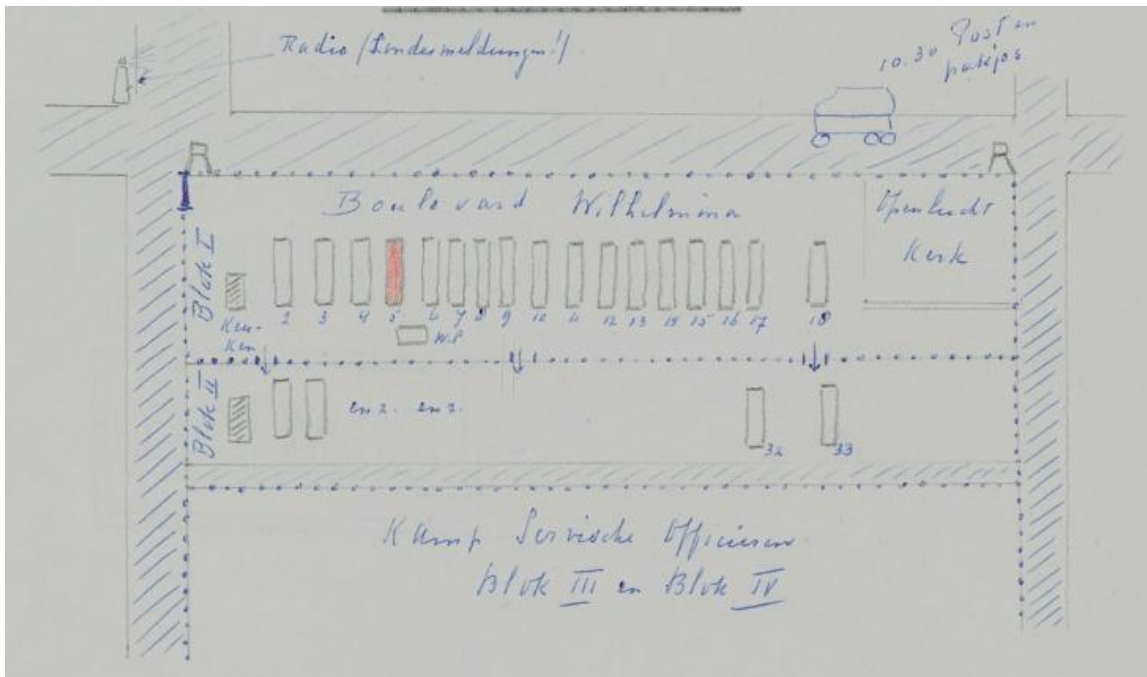 Radio (Sondermeldungen!)
10.30 Post en
pakjes
Boulevard Wilhelmina
Openlucht
Kerk
Blok I
Keu-
ken
2 3 4 5 6 7 8 9 10 11 12 13 14 15 16 17 18
W.P.
Blok II
enz. enz.
32 33
Kamp Servische Officieren
Blok III en Blok IV